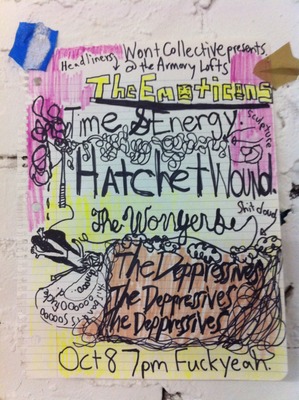 Headliners Wont Collective presents
@ the Armory Lofts
The Emoticons
Time & Energy
sculpture
HAtcHet Wound.
The Wongers
Shit cloud
The Deppressives
The Deppressives
The Deppressives
Oct 8 7pm Fuckyeah.